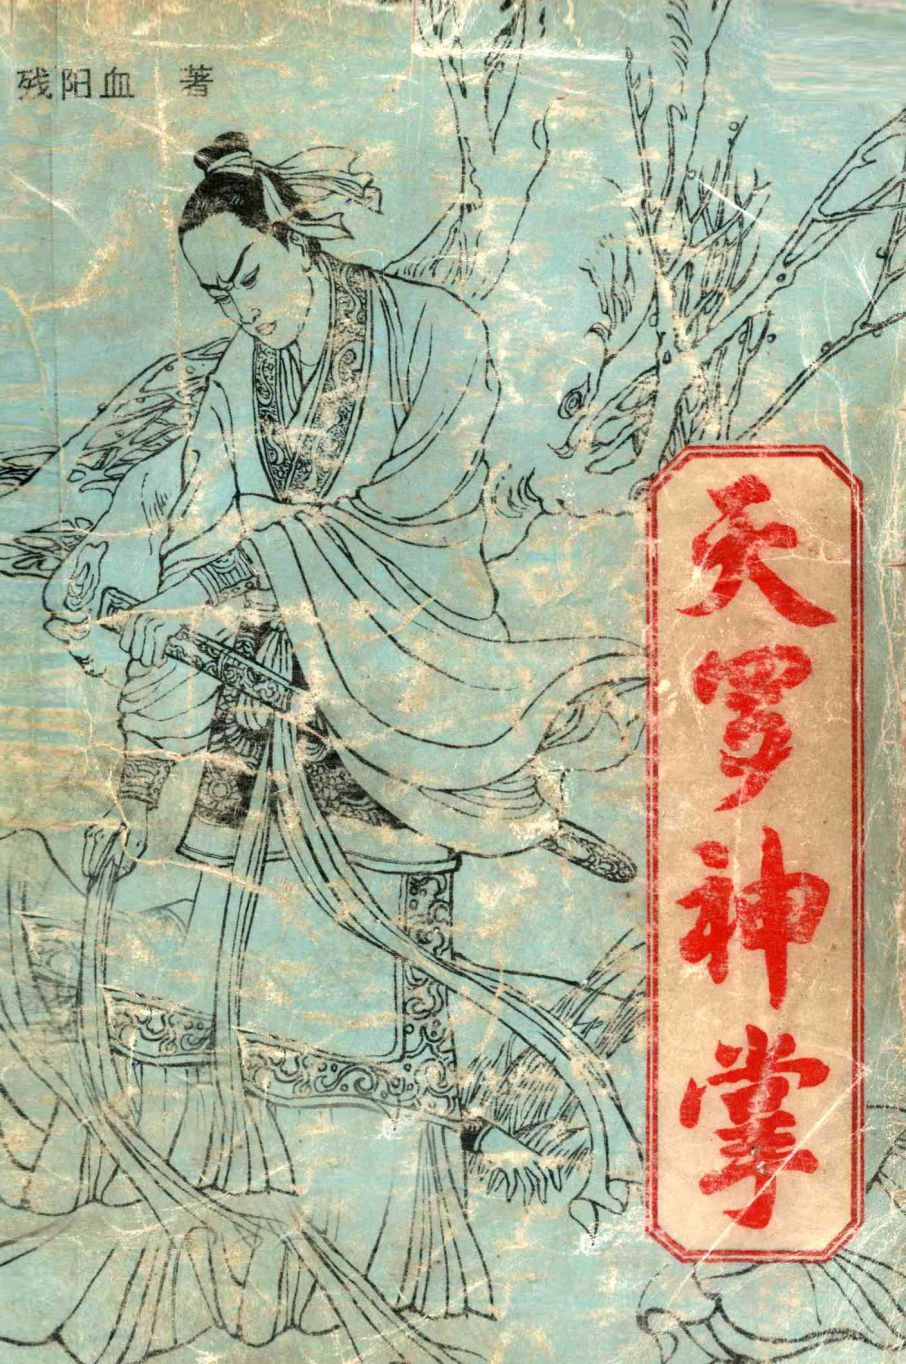 残阳血 著
天罗神掌